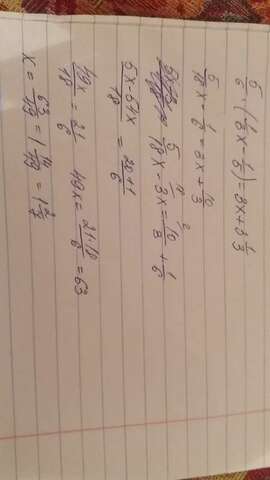 5/6 · (1/3x - 1/5) = 3x + 3 1/3
5/18x - 1/6 = 3x + 10/3
5/18x - 3x = 10/3 + 1/6
5x - 54x/18 = 20+1/6
49x/18 = 21/6 49x = 21·18/6 = 63
x = 63/49 = 1 14/49 = 1 2/7